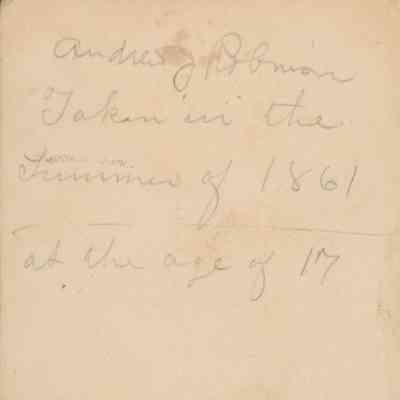 Andrew J Robinson
Taken in the
Summer of 1861
at the age of 17